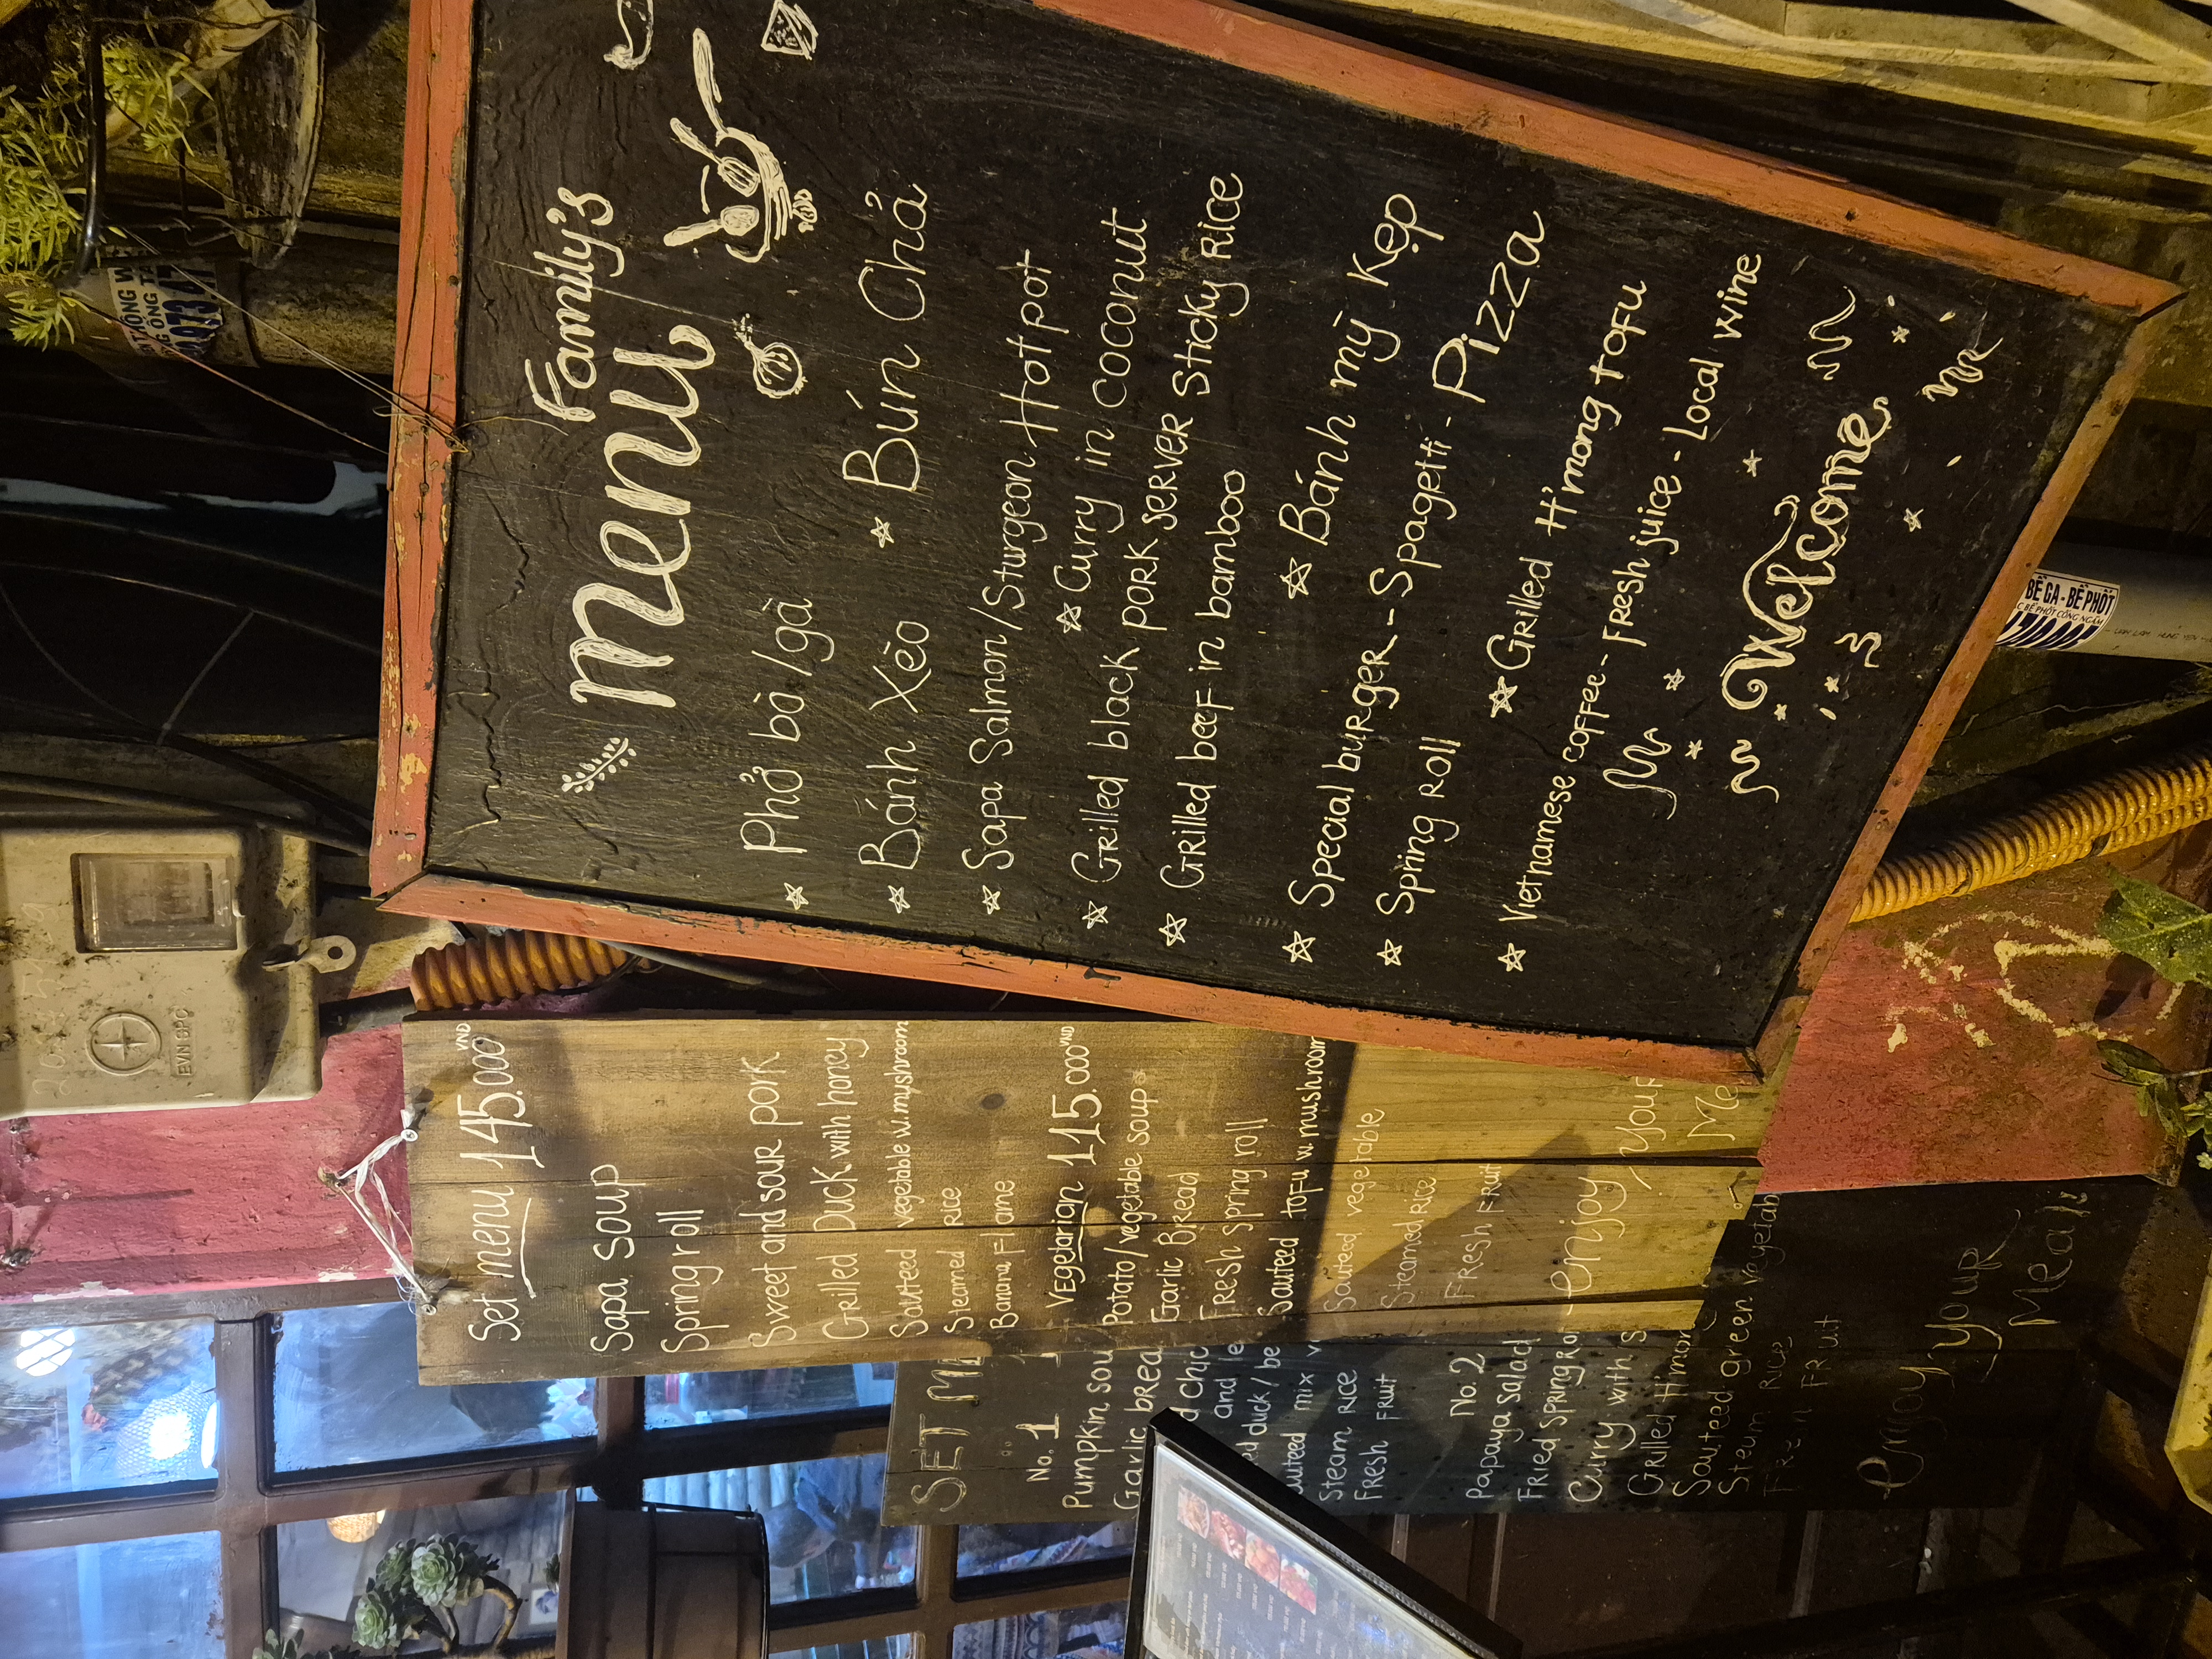 Family's
menu
☆ Phở bò/gà
☆ Bánh Xèo ☆ Bún Chả
☆ Sapa Salmon/Sturgeon Hotpot
☆ Curry in coconut
☆ Grilled black pork server Sticky Rice
☆ Grilled beef in bamboo
☆ Bánh mỳ Kẹp
☆ Special burger - Spagetti - Pizza
☆ Spring roll
☆ Grilled H'mong tofu
☆ Vietnamese coffee - Fresh juice - Local wine
Welcome
Set menu 145.000 VND
Sapa soup
Spring roll
Sweet and sour pork
Grilled Duck with honey
Sauteed vegetable w. myshroom
Steamed rice
Banana Flame
Vegetarian 115.000 VND
Potato/vegetable soup
Garlic Bread
Fresh spring roll
Sauteed tofu w mushroom
Sauteed vegetable
Steamed rice
Fresh fruit
enjoy your
Me
SET ME
No. 1
Pumpkin sou
Garlic brea
d chic
and le
ed duck / be
uteed mix v
Steam rice
Fresh fruit
No. 2
Papaya salad
Fried spring ro
Curry with s
Grilled H'mon
Sauteed green vegetab
Steam rice
Fresh fruit
enjoy your
Meal
EVN CPC
BỂ GA - BỂ PHỐT